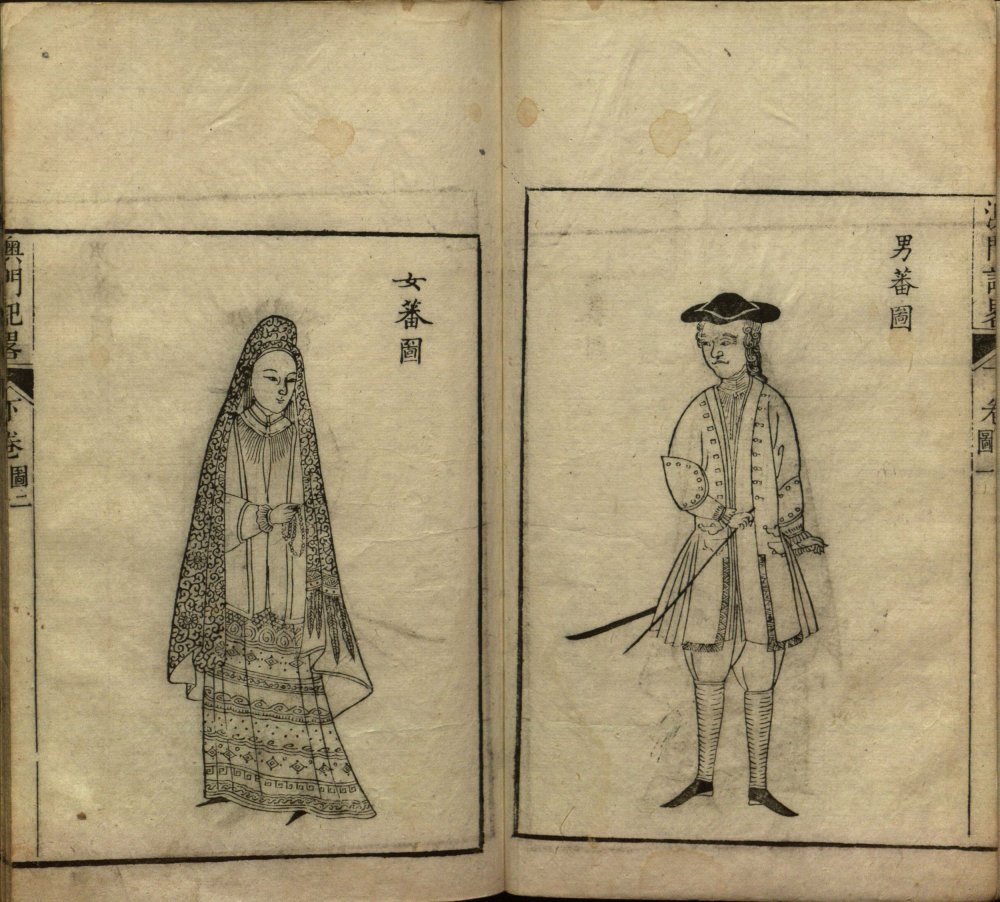 澳門記畧
下卷
圖一
男蕃圖
女蕃圖
澳門記畧
下卷
圖二